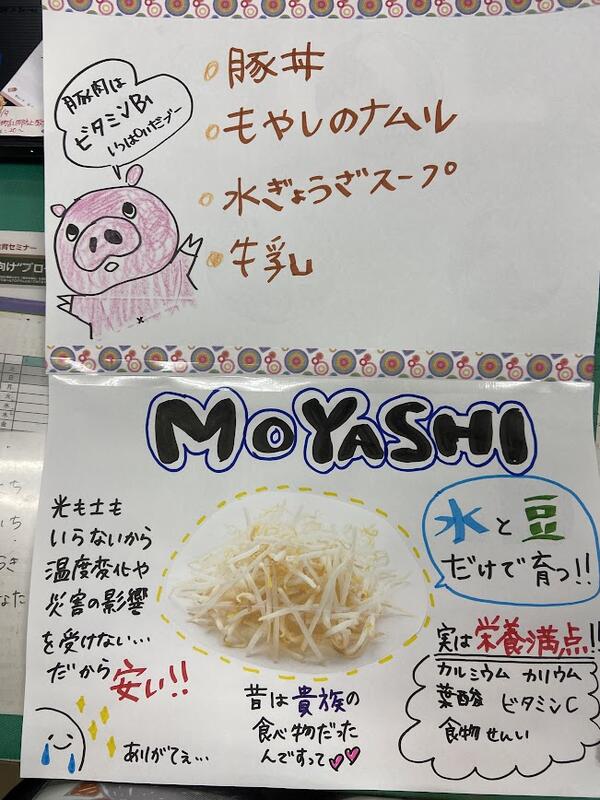 豚肉は
ビタミンB₁
いっぱいだブー
豚丼
もやしのナムル
水ぎょうざスープ
牛乳
MOYASHI
光も土も
いらないから
温度変化や
災害の影響
を受けない…
だから安い!!
ありがてぇ…
昔は貴族の
食べ物だった
んですって
水と豆
だけで育つ!!
実は栄養満点!!
カルシウム カリウム
葉酸 ビタミンC
食物せんい
育セミナー
向け"プロ